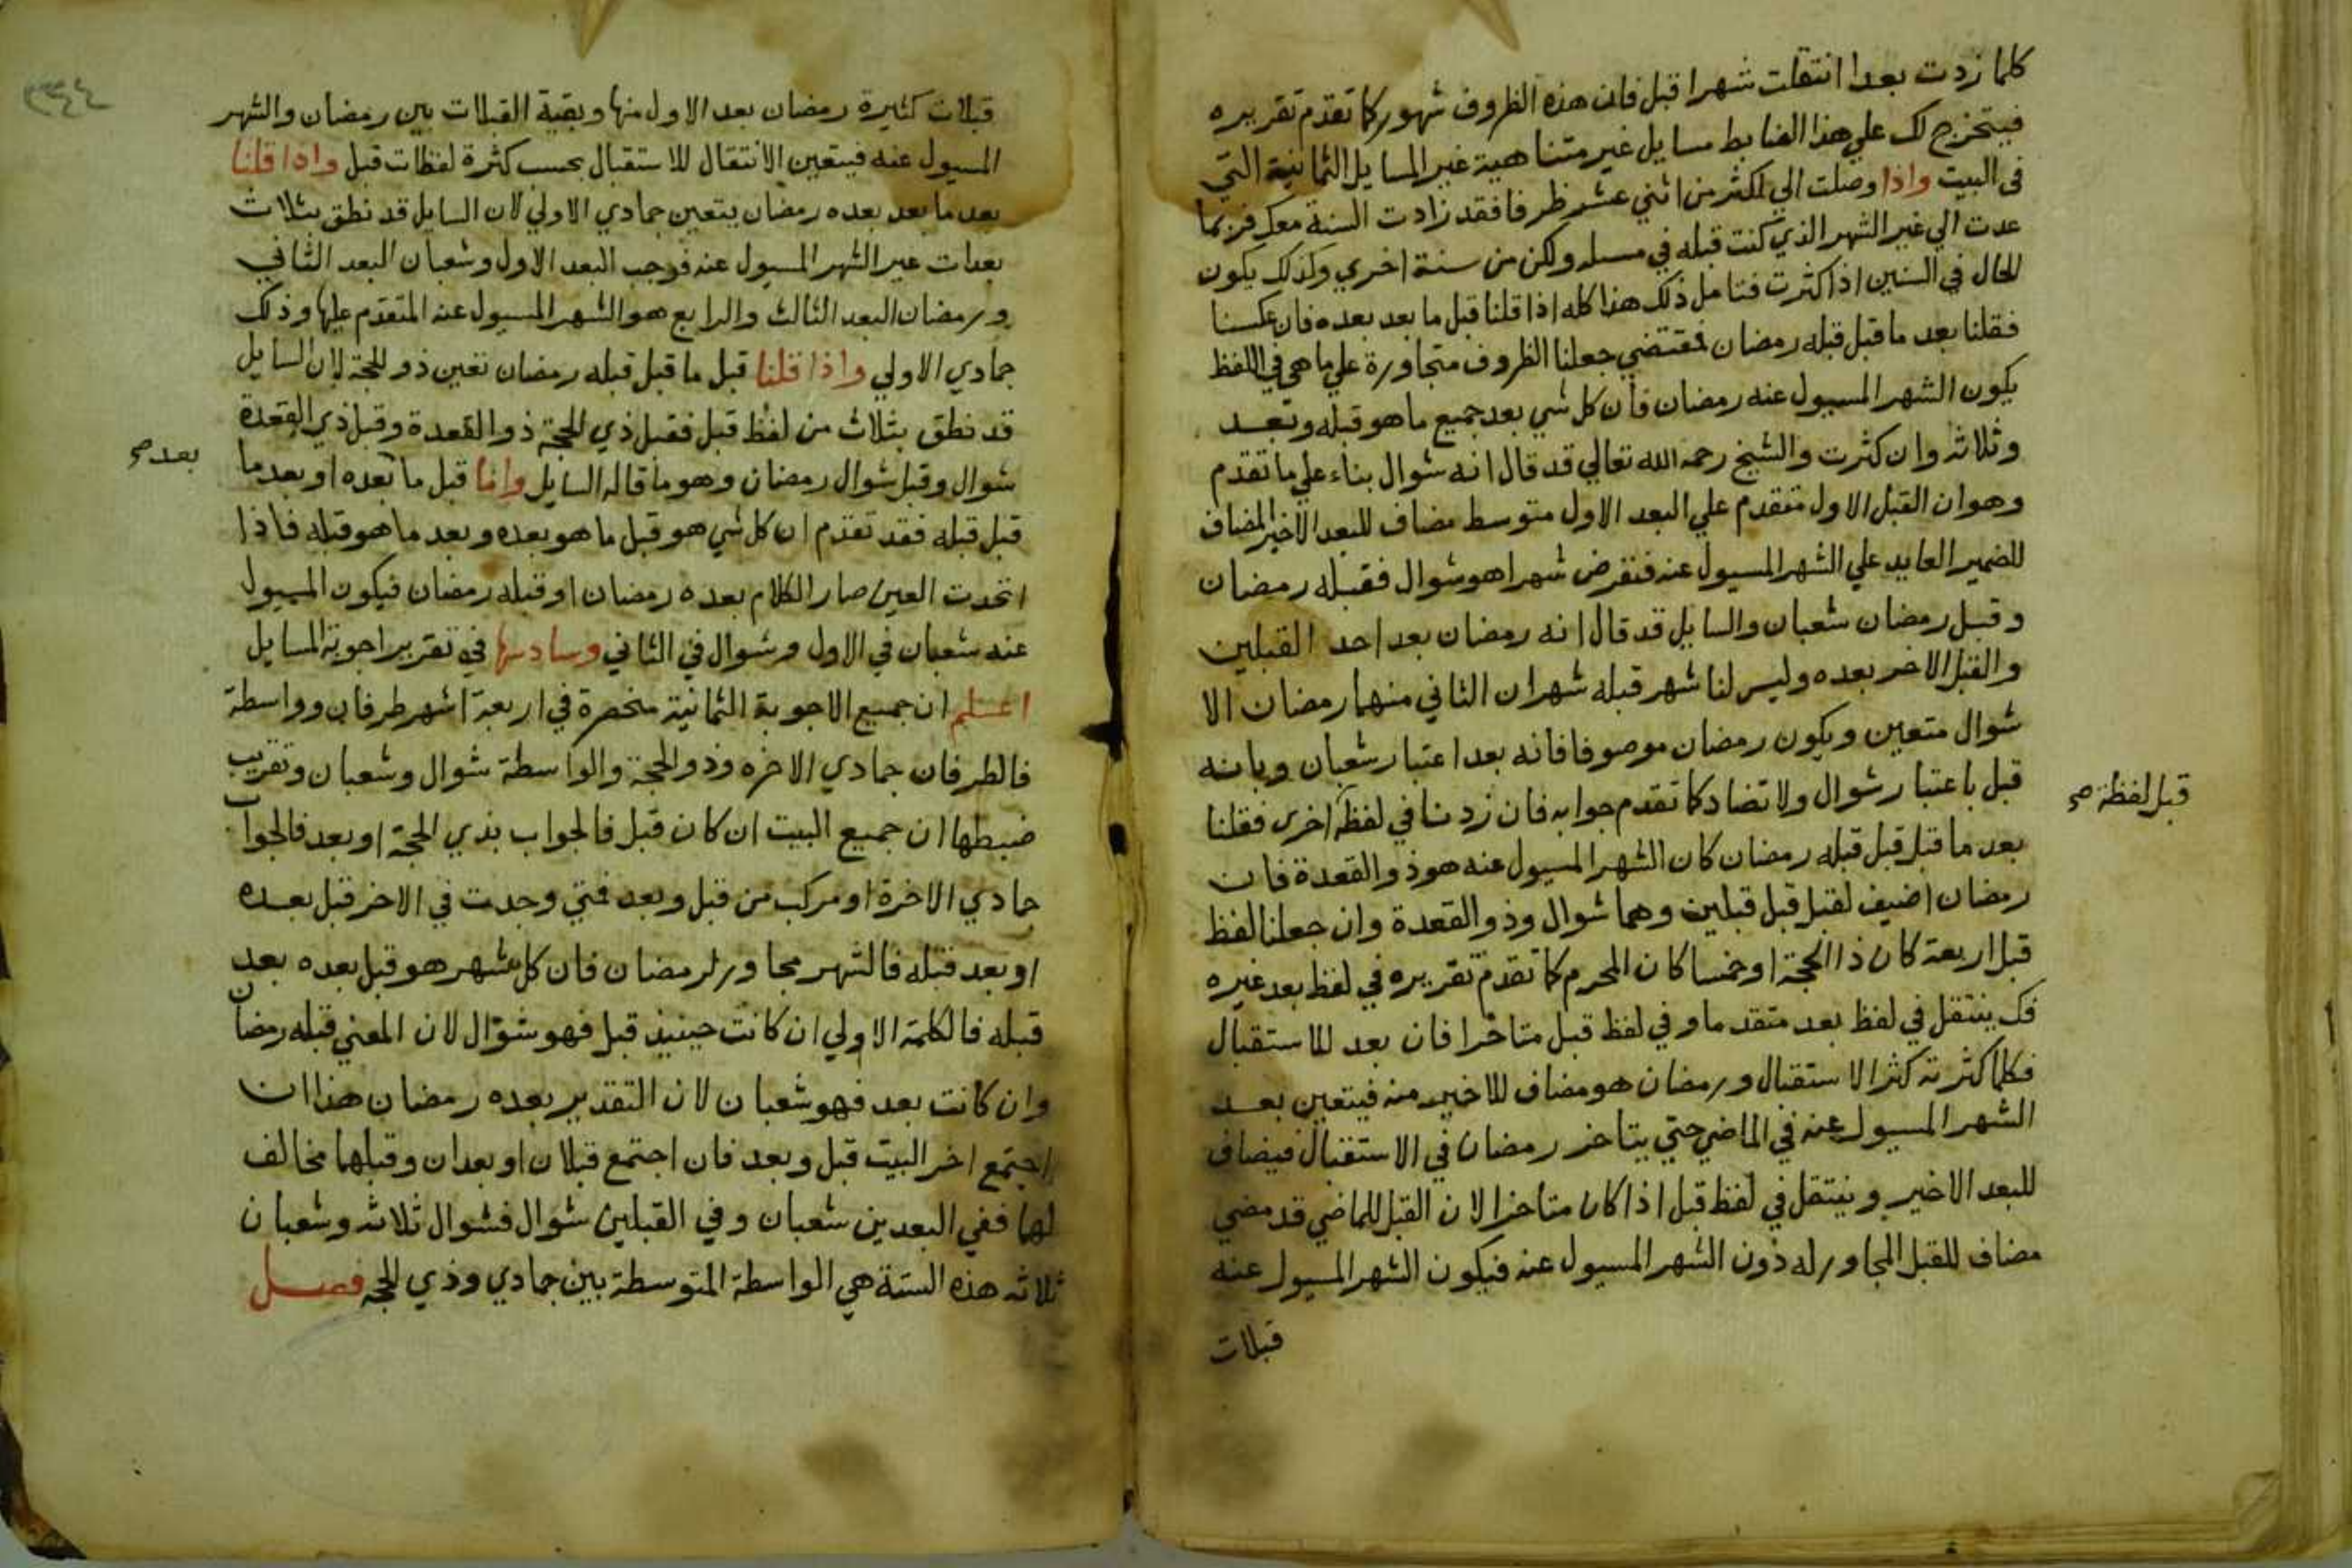 كلما زدت بعدا انتقلت شهرا قبل فان هذه الظروف شهور كما تقدم تقريره
فيتخرج لك علي هذا الضابط مسايل غير متناهية غير المسايل الثمانية التي
في البيت واذا وصلت الي اكثر من اثني عشر ظرفا فقد زادت السنة معك فربما
عدت الي غير الشهر الذي كنت قبله في مسله ولكن من سنة اخري وكذلك يكون
الحال في السنين اذا كثرت فتامل ذلك هذا كله اذا قلنا قبل ما بعد بعده فان عكسنا
فقلنا بعد ما قبل قبله رمضان فمقتضي جعلنا الظروف متجاورة علي ما هي في اللفظ
يكون الشهر المسيول عنه رمضان فان كل شي بعد جميع ما هو قبله وبعد
وثلاثه وان كثرت والشيخ رحمه الله تعالي قد قال انه شوال بناء علي ما تقدم
وهو ان القبل الاول متقدم علي البعد الاول متوسط مضاف للبعد الاخير المضاف
للضمير العايد علي الشهر المسيول عنه فنفرض شهرا هو شوال فقبله رمضان
وقبل رمضان شعبان والسايل قد قال انه رمضان بعد احد القبلين
والقبل الاخر بعده وليس لنا شهر قبله شهران الثاني منهما رمضان الا
شوال متعين ويكون رمضان موصوفا فانه بعد اعتبار شعبان وبانه
قبل باعتبار شوال ولا تضاد كما تقدم جوابه فان زدنا في لفظة اخري فقلنا
قبل لفظة صح
بعد ما قبل قبل قبله رمضان كان الشهر المسيول عنه هو ذو القعدة فان
رمضان اضيف لقبل قبل قبلين وهما شوال وذو القعدة وان جعلنا لفظ
قبل اربعة كان ذا الحجة او خمسا كان المحرم كما تقدم تقريره في لفظ بعد غيره
فك ينتقل في لفظ بعد متقدما وفي لفظ قبل متاخرا فان بعد للاستقبال
فكلما كثرته كثر الاستقبال ورمضان هو مضاف للاخير منه فيتعين بعد
الشهر المسيول عنه في الماضي حتي يتاخر رمضان في الاستقبال فيضاف
للبعد الاخير وينتقل في لفظ قبل اذا كان متاخرا لان القبل للماضي قد مضي
مضاف للقبل المجاور له دون الشهر المسيول عنه فيكون الشهر المسيول عنه
قبلات
قبلات كثيرة رمضان بعد الاول منها وبقية القبلات بين رمضان والشهر
المسيول عنه فيتعين الانتقال للاستقبال بحسب كثرة لفظات قبل واذا قلنا
بعد ما بعد بعده رمضان يتعين جمادي الاولي لان السايل قد نطق بثلاث
بعدات غير الشهر المسيول عنه فرجب البعد الاول وشعبان البعد الثاني
ورمضان البعد الثالث والرابع هو الشهر المسيول عنه المتقدم عليها وذلك
جمادي الاولي واذا قلنا قبل ما قبل قبله رمضان تعين ذو الحجة لان السايل
قد نطق بثلاث من لفظ قبل فقبل ذي الحجة ذو القعدة وقبل ذي القعدة
شوال وقبل شوال رمضان وهو ما قاله السايل واما قبل ما بعده او بعد ما
بعد صح
قبل قبله فقد تقدم ان كل شي هو قبل ما هو بعده وبعد ما هو قبله فاذا
اتحدت العين صار الكلام بعده رمضان او قبله رمضان فيكون المسيول
عنه شعبان في الاول وشوال في الثاني وسادسها في تقرير اجوبة المسايل
اعلم ان جميع الاجوبة الثمانية منحصرة في اربعة اشهر طرفان وواسطة
فالطرفان جمادي الاخره وذو الحجة والواسطة شوال وشعبان وتقريب
ضبطها ان جميع البيت ان كان قبل فالجواب بذي الحجة او بعد فالجواب
جمادي الاخرة او مركب من قبل وبعد فمتي وجدت في الاخر قبل بعده
او بعد قبله فالشهر مجاور لرمضان فان كل شهر هو قبل بعده بعد
قبله فالكلمة الاولي ان كانت حينيذ قبل فهو شوال لان المعني قبله رمضان
وان كانت بعد فهو شعبان لان التقدير بعده رمضان هذا ان
اجتمع اخر البيت قبل وبعد فان اجتمع قبلان او بعدان وقبلهما مخالف
لهما ففي البعدين شعبان وفي القبلين شوال فشوال ثلاثه وشعبان
ثلاثه هذه الستة هي الواسطة المتوسطة بين جمادي وذي الحجه فصل